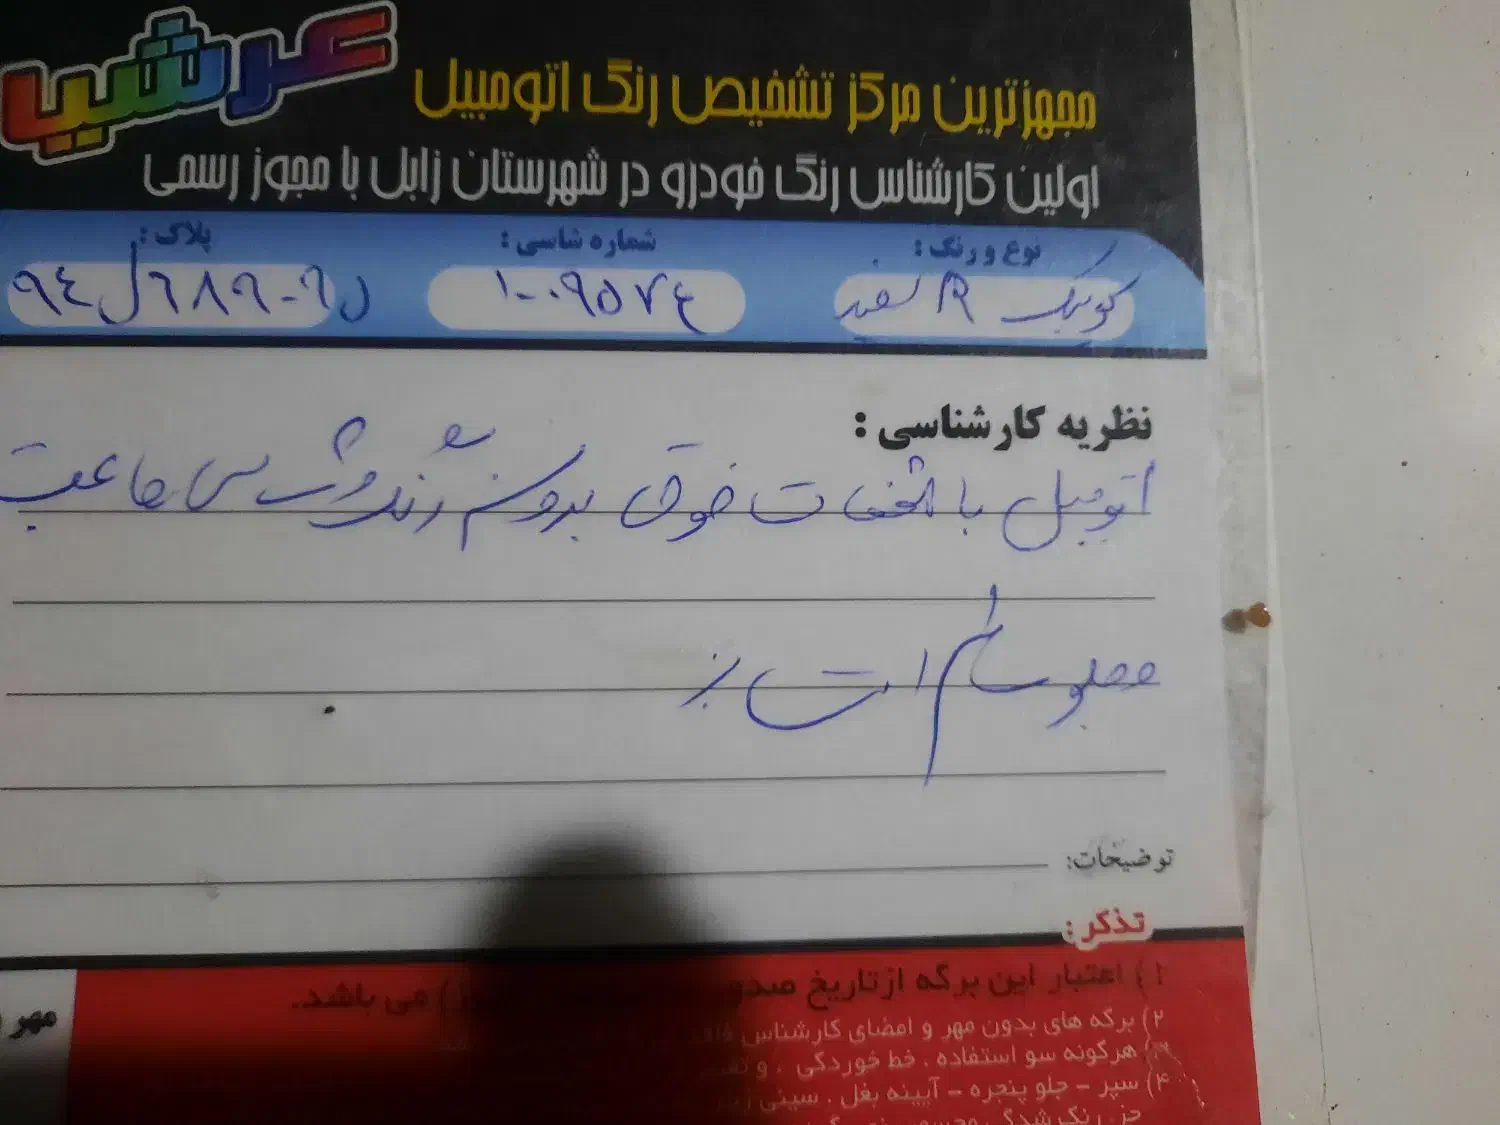 عرشیا
مجهزترین مرکز تشخیص رنگ اتومبیل
اولین کارشناس رنگ خودرو در شهرستان زابل با مجوز رسمی
نوع و رنگ: شماره شاسی: پلاک:
کوییک R سفید ۱۰۰۹۵۷۴
نظریه کارشناسی:
اتومبیل با مشخصات فوق بدون رنگ شاسی ها عقب
جلو سالم است
توضیحات:
تذکر:
۱) اعتبار این برگه از تاریخ صدور ) می باشد.
۲) برگه های بدون مهر و امضای کارشناس فاقد
هرگونه سو استفاده . خط خوردگی . و
۴) سپر - جلو پنجره - آیینه بغل . سینی زیر
جز . رنگ شدگی
مهر